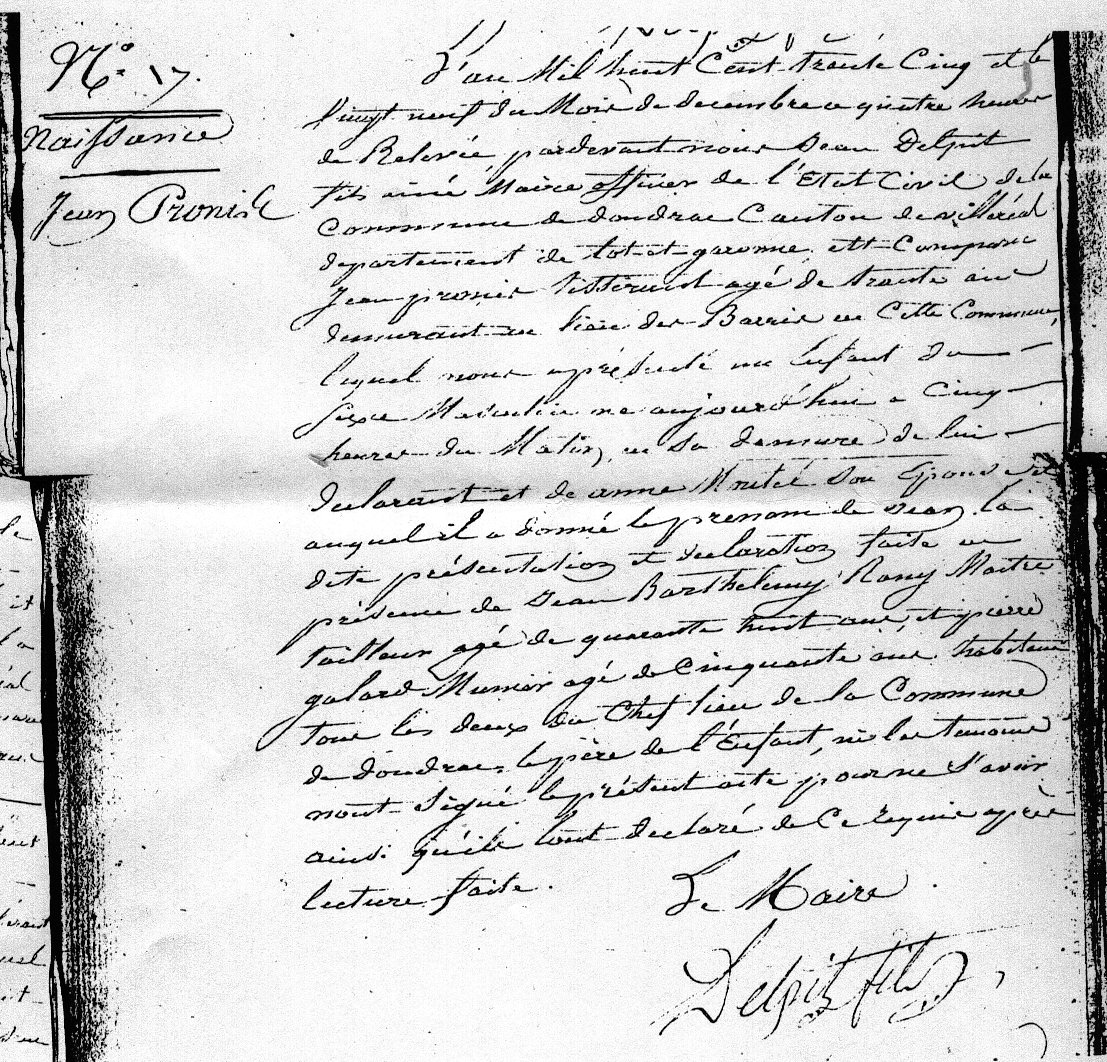 N° 17.
Naissance
Jean Pronis
L'an Mil huit Cent trante Cinq et le
vingt neuf du Mois de decembre a quatre heures
de Relevée pardevant nous Jean Delpit
fils ainé Maire officier de l'Etat Civil de la
Commune de doudrac Canton de villeréal
departement de lot-et-garonne, est Comparu
Jean pronis tisserant agé de trante ans
demurant au lieu des Barris en Cette Commune,
lequel nous a présenté un Enfant du
sexe Masculin ne aujourd'hui a Cinq
heures du Matin, en sa demure de lui
declarant et de anne son Epouse et
auquel il a donné le prenom de Jean la
dite présentation et declaration faite en
présence de Jean Barthelemy Rouy Maitre
tailleur agé de quarante huit ans, et pierre
galard Munier agé de Cinquante ans habitans
tous les deux du Chef lieu de la Commune
de doudrac, le père de l'Enfant, ni les temoins
nont signé le présent acte pour ne savoir
ainsi qu'ils lont declaré de Ce requis après
lecture faite.
Le Maire
Delpit fils